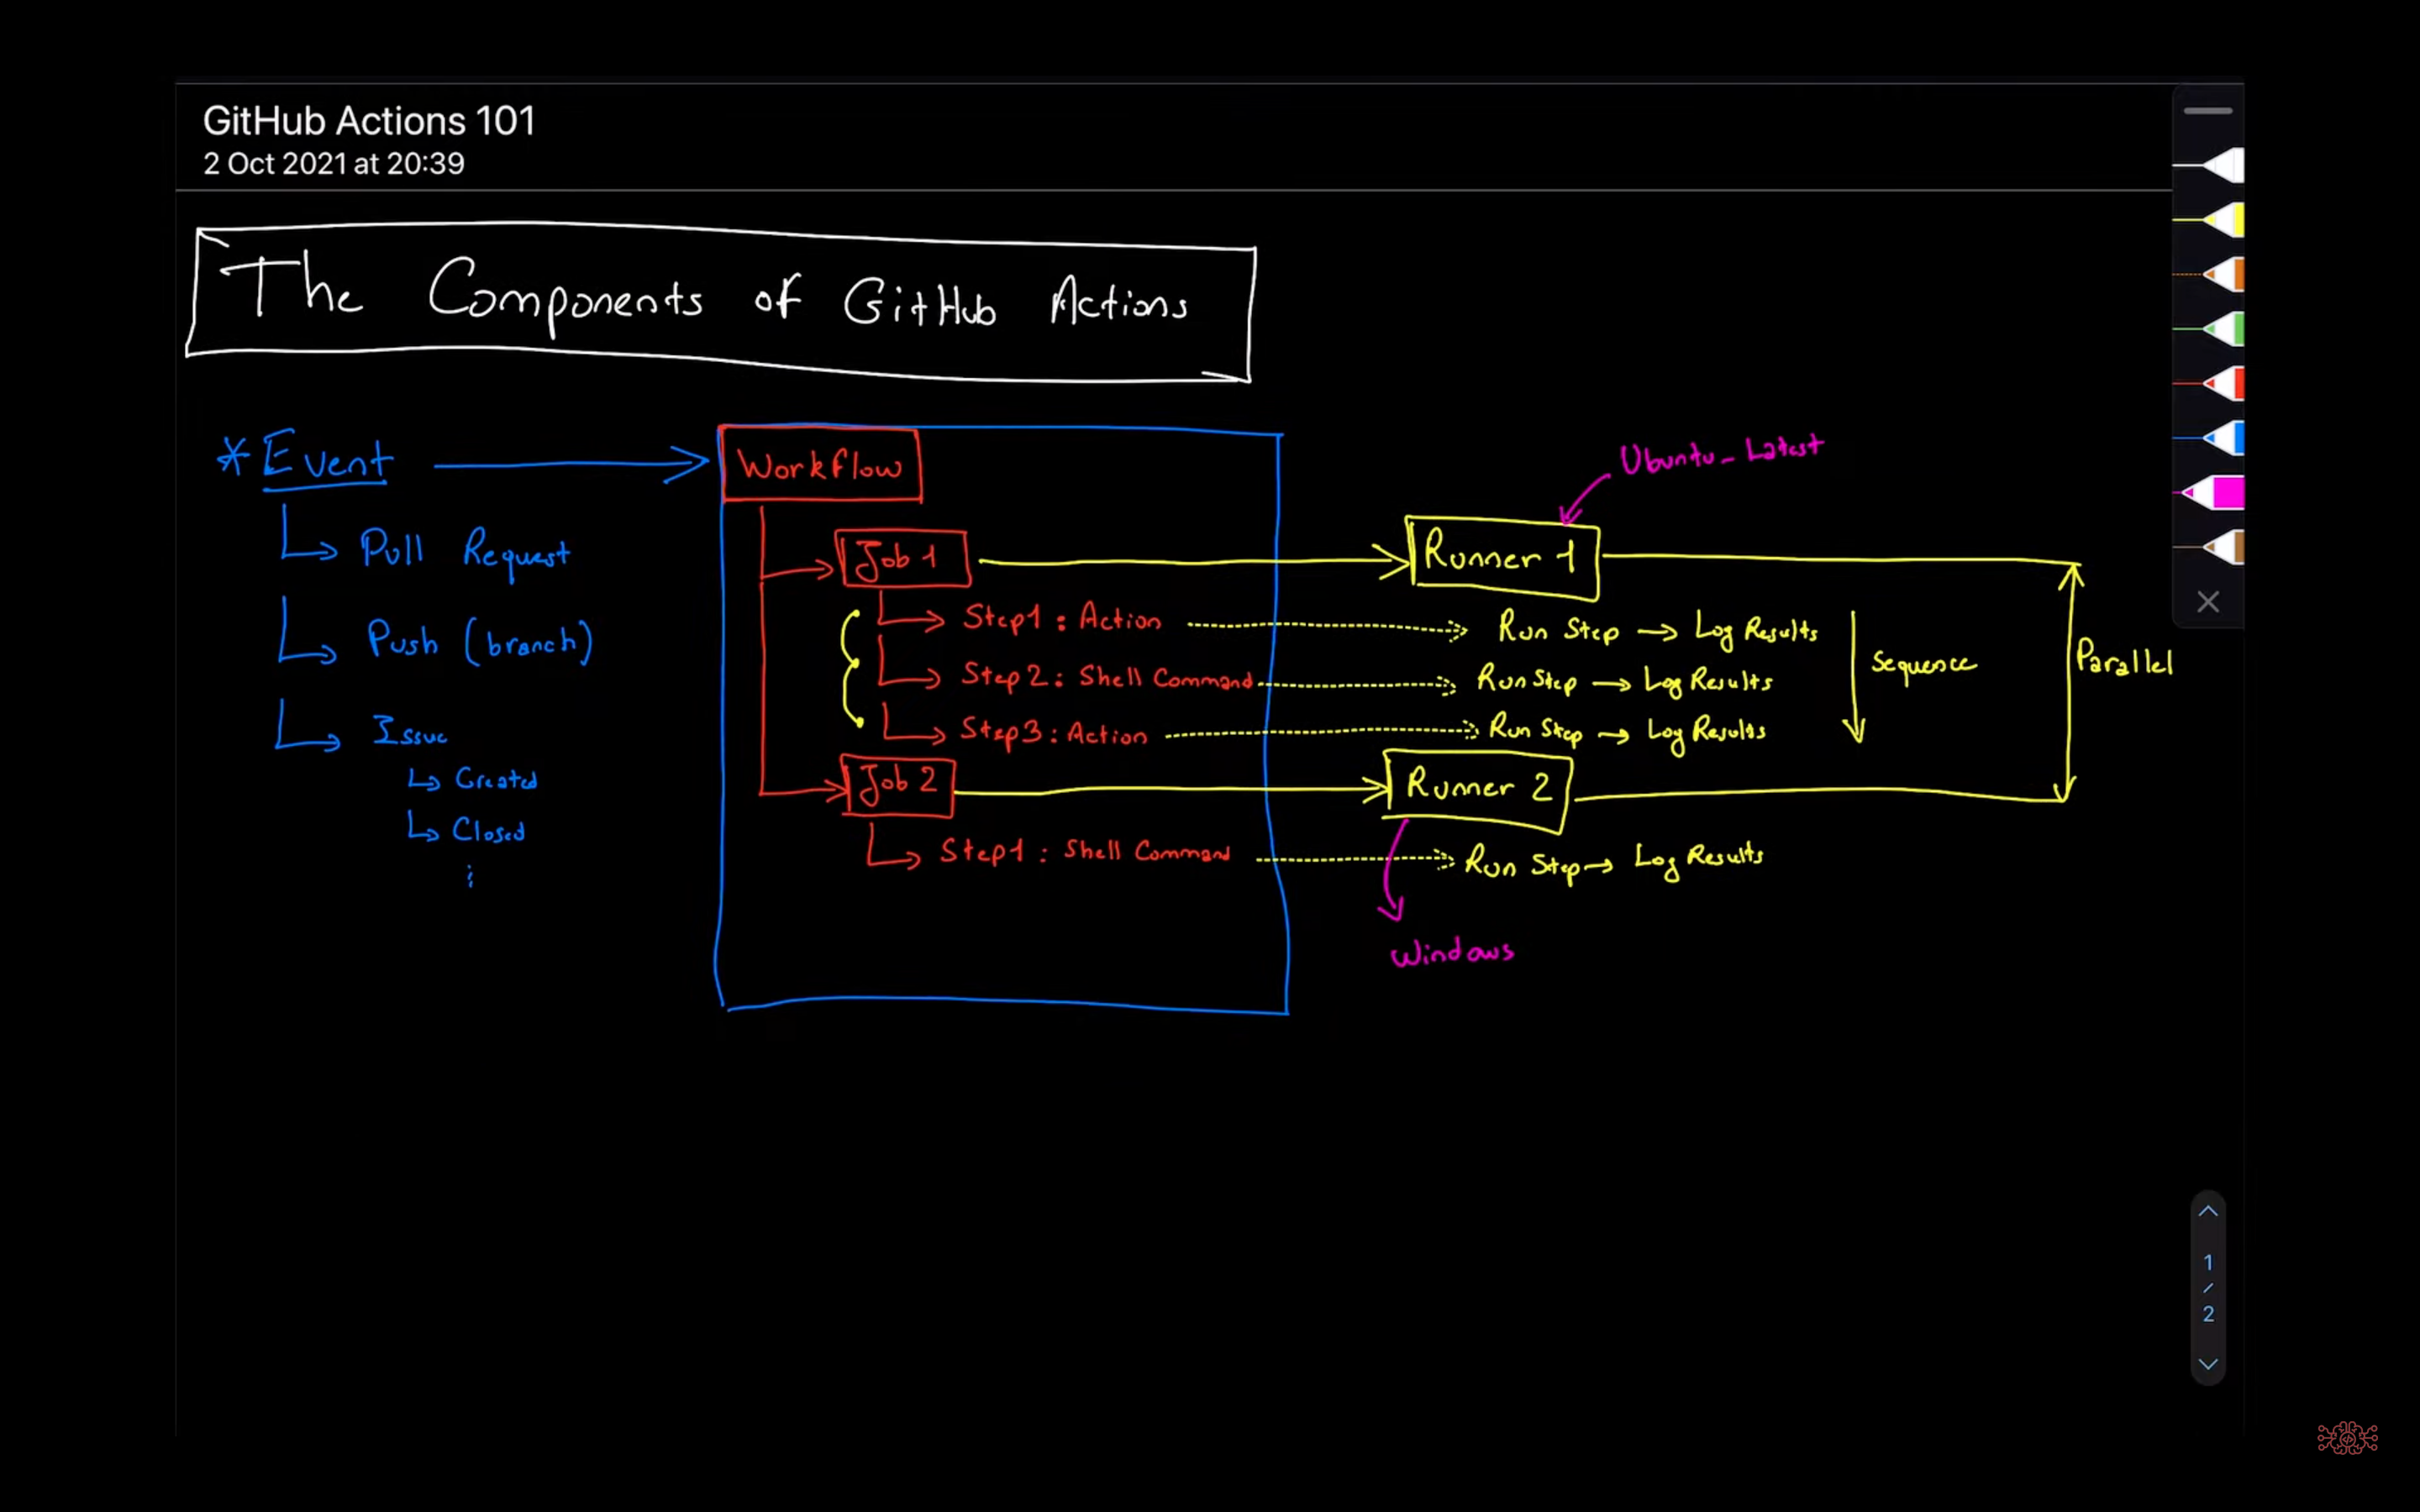 GitHub Actions 101
2 Oct 2021 at 20:39
The Components of GitHub Actions
* Event
Pull Request
Push (branch)
Issue
Created
Closed
Workflow
Job 1
Step1 : Action
Step2 : Shell Command
Step3 : Action
Job 2
Step1 : Shell Command
Ubuntu_Latest
Runner 1
Run Step → Log Results
Run Step → Log Results
Run Step → Log Results
Sequence
Parallel
Runner 2
Run Step → Log Results
Windows
1
/
2